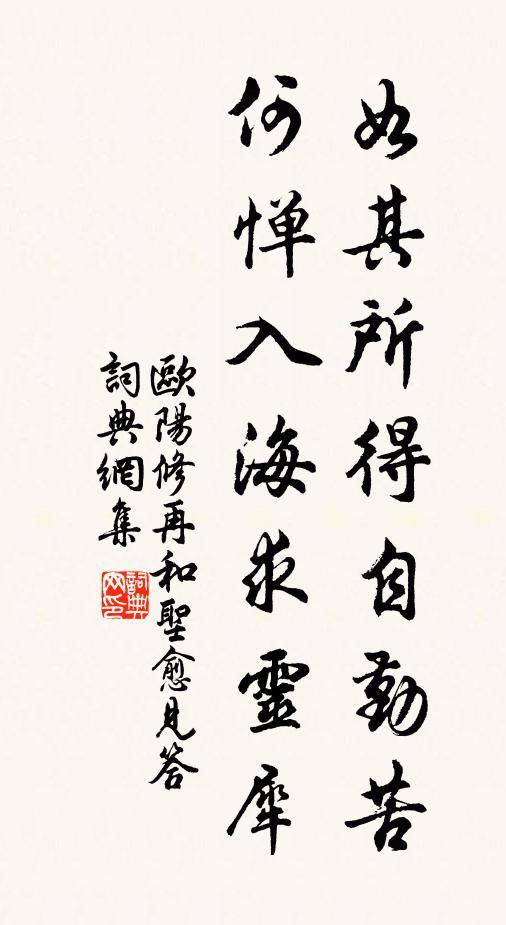 如其所得自勤苦
何惮入海求靈犀
歐陽修再和聖愈見答
詞典網集
詞典网印